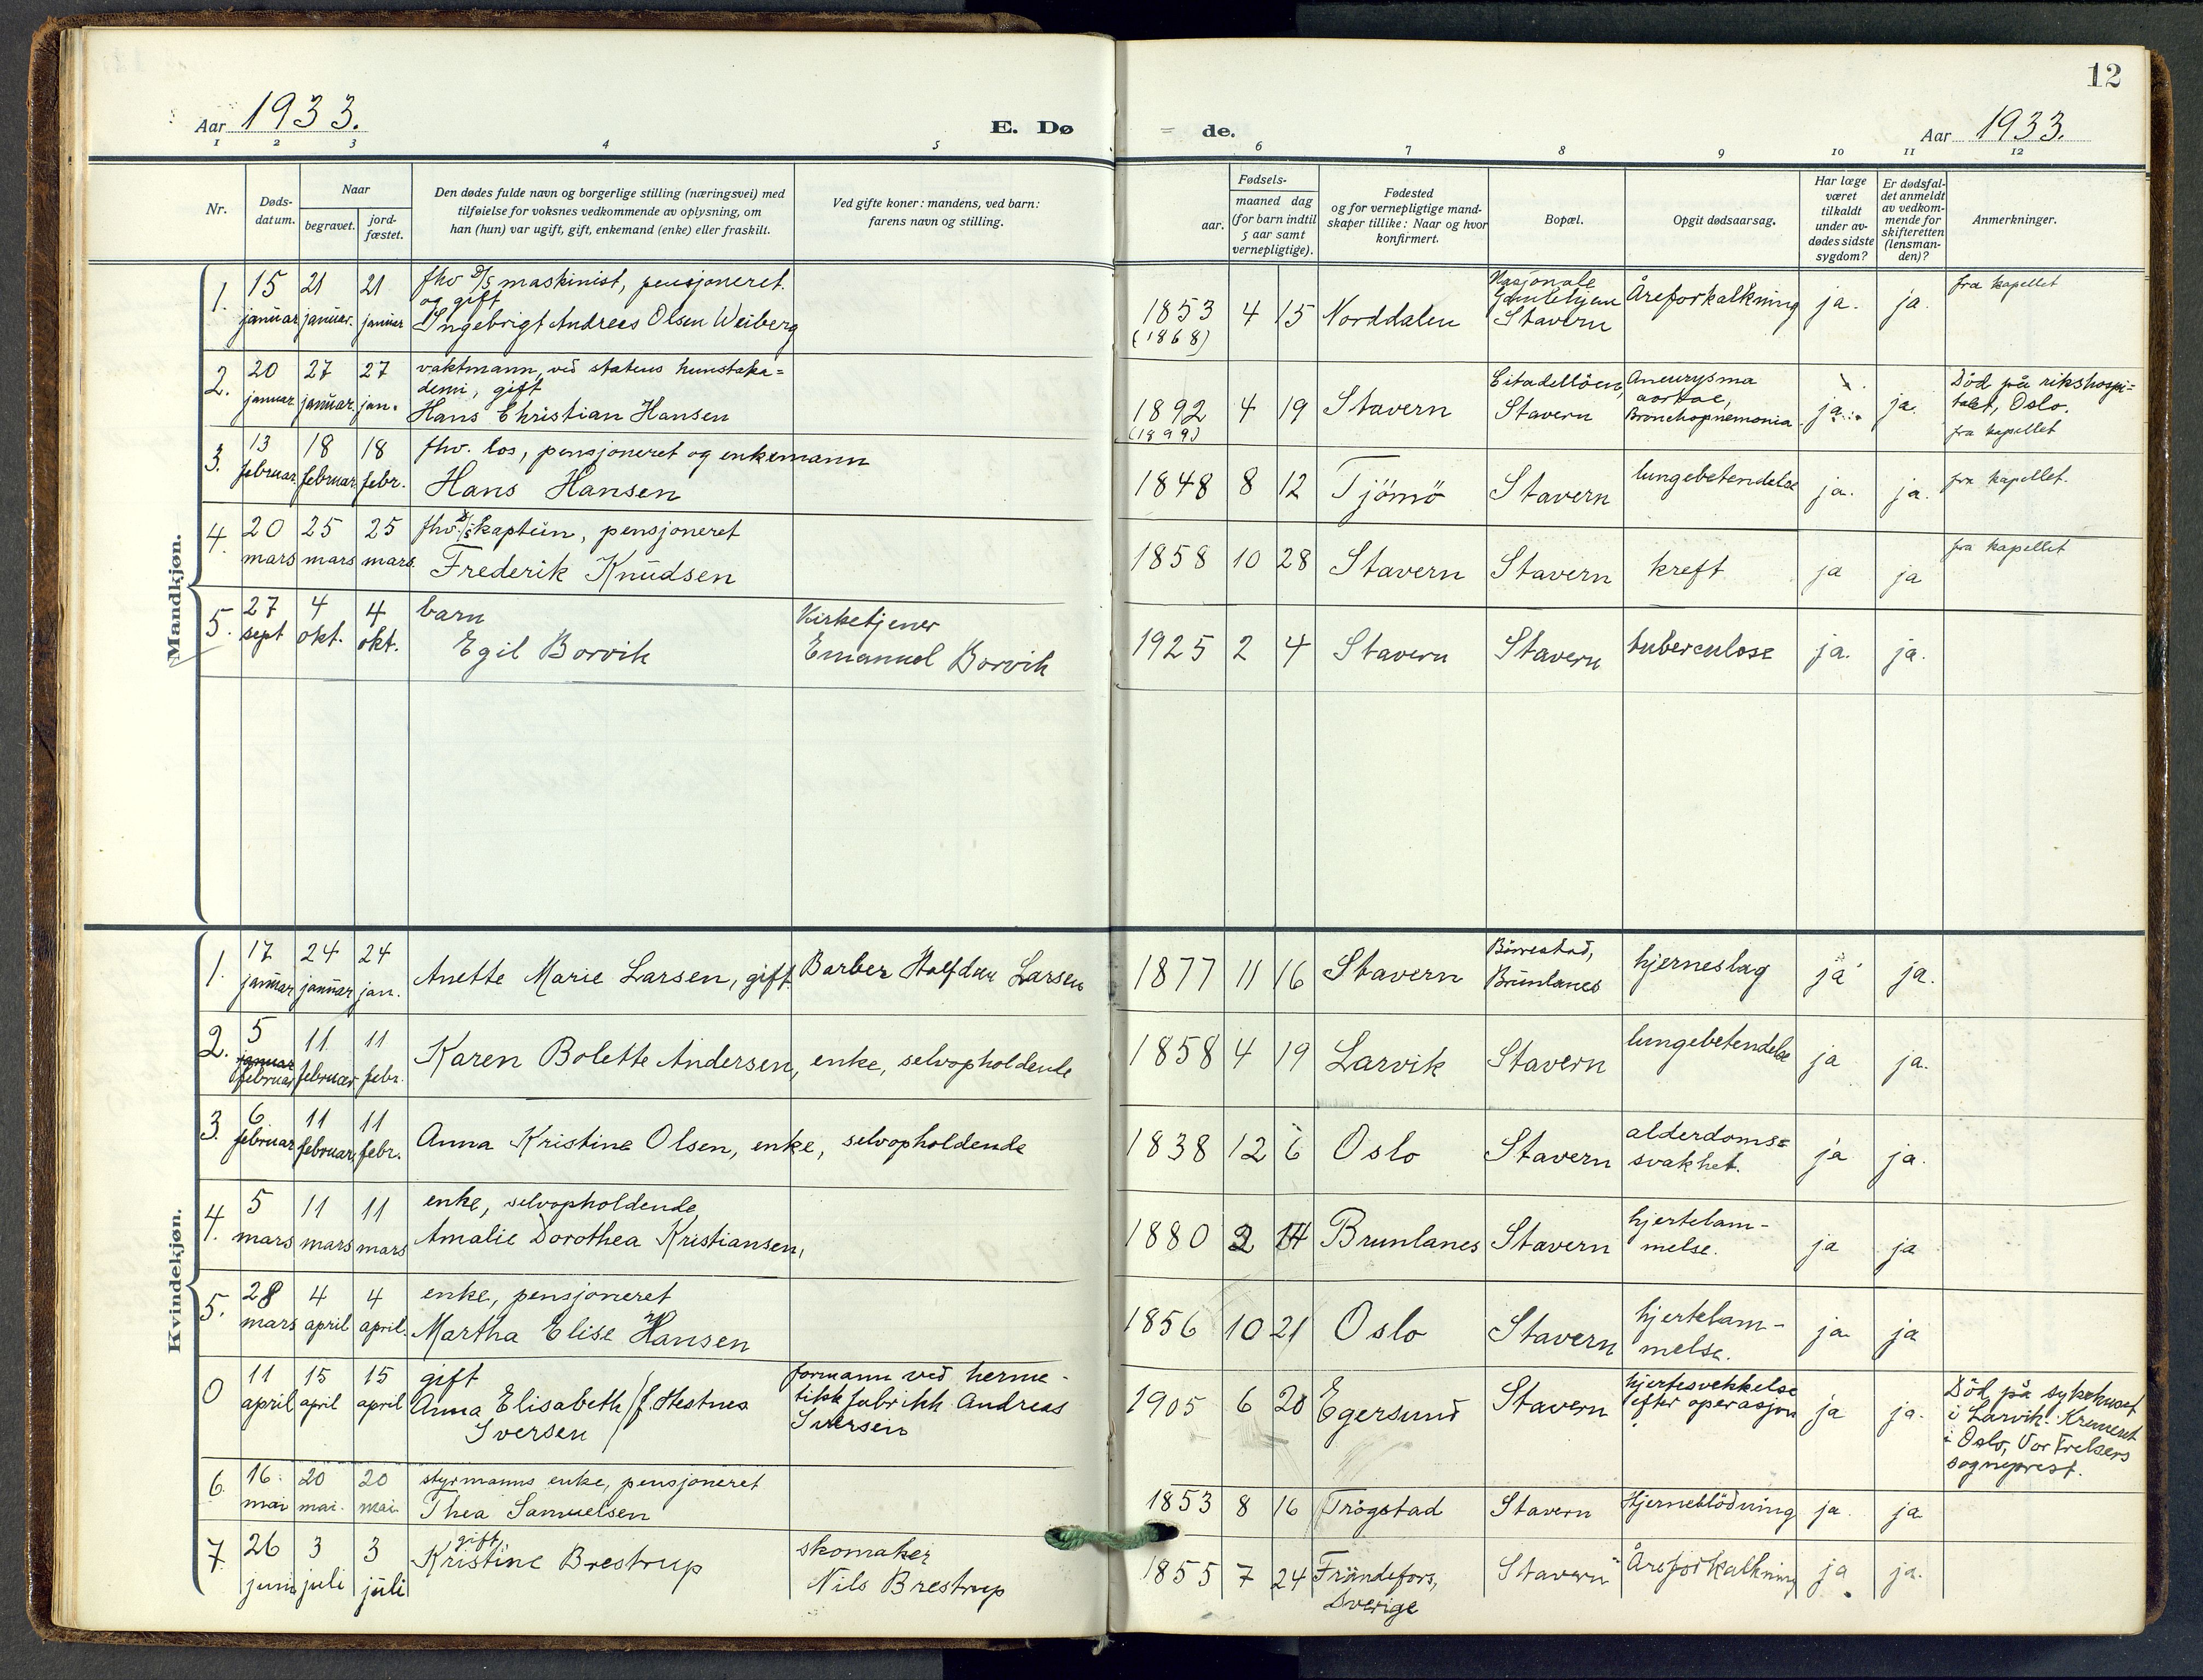 12
Aar 1933.
E. Dø
de.
Aar 1933.
1 2 3 4 5 6 7 8 9 10 11 12
Nr.
Døds-
datum.
Naar
begravet.
jord-
fæstet.
Den dødes fulde navn og borgerlige stilling (næringsvei) med
tilføielse for voksnes vedkommende av oplysning, om
han (hun) var ugift, gift, enkemand (enke) eller fraskilt.
Ved gifte koner: mandens, ved barn:
farens navn og stilling.
Fødsels-
aar.
maaned dag
(for barn indtil
5 aar samt
vernepligtige).
Fødested
og for vernepligtige mand-
skaper tillike: Naar og hvor
konfirmert.
Bopæl.
Opgit dødsaarsag.
Har læge
været
tilkaldt
under av-
dødes sidste
sygdom?
Er dødsfal-
det anmeldt
av vedkom-
mende for
skifteretten
(lensman-
den)?
Anmerkninger.
Mandkjøn.
1. 15 januar 21 januar. 21 januar
fhv D/S maskinist, pensjoneret.
og gift
Ingebrigt Andreas Olsen Weiberg
1853 4 15 Norddalen
(1868)
Nasjonale
Gamlehjem
Stavern
Åreforkalkning ja. ja.
fra kapellet
2. 20 januar 27 januar. 27 jan.
vaktmann, ved statens kunstaka=
demi, gift
Hans Christian Hansen
1892 4 19 Stavern
(1899)
Citadelløen,
Stavern
Aneurysma
aortae,
Bronchopnemonia
ja. ja.
Död på rikshospi=
talet, Oslo.
fra kapellet
3. 13 februar 18 februar 18 febr.
fhv. los, pensjoneret og enkemann
Hans Hansen
1848 8 12 Tjömö Stavern lungebetendelse ja. ja.
fra kapellet.
4. 20 mars 25 mars 25 mars
fhv. D/S kaptein, pensjoneret
Frederik Knudsen
1858 10 28 Stavern Stavern kreft ja ja
fra kapellet
5. 27 sept 4 okt. 4 okt.
barn
Egil Borvik
Kirketjener
Emanuel Borvik
1925 2 4 Stavern Stavern tuberculose ja. ja.
Kvindekjøn.
1. 17 januar 24 januar 24 jan.
Anette Marie Larsen, gift. Barber Halfdan Larsen
1877 11 16 Stavern
Börrestad,
Brunlanes
hjerneslag ja ja.
2. 5 januar februar 11 februar 11 febr.
Karen Bolette Andersen, enke, selvopholdende
1858 4 19 Larvik Stavern lungebetendelse ja ja.
3. 6 februar 11 februar 11 febr.
Anna Kristine Olsen, enke, selvopholdende
1838 12 6 Oslo Stavern
alderdoms=
svakhet.
ja ja.
4. 5 mars 11 mars 11 mars
enke, selvopholdende
Amalie Dorothea Kristiansen,
1880 2 14 Brunlanes Stavern
hjertelam-
melse.
ja ja
5. 28 mars 4 april 4 april.
enke, pensjoneret
Martha Elise Hansen
1856 10 21 Oslo Stavern
hjertelam-
melse.
ja ja
0 11 april 15 april 15 april
gift
Anna Elisabeth / f. Hestnes
Iversen
formann ved herme-
tikk fabrikk Andreas
Iversen
1905 6 20 Egersund Stavern
hjertesvekkelse
efter operasjon
ja ja.
Död på sykehuset
i Larvik. Kremert
i Oslo, Vor Frelsers
sogneprest.
6. 16. mai 20 mai. 20 mai
styrmanns enke, pensjoneret
Thea Samuelsen
1853 8 16 Trögstad Stavern Hjerneblödning ja. ja
7. 26 juni 3 juli 3 juli
gift,
Kristine Brestrup
skomaker
Nils Brestrup
1855 7 24 Frändefors,
Sverige
Stavern Åreforkalkning ja ja.